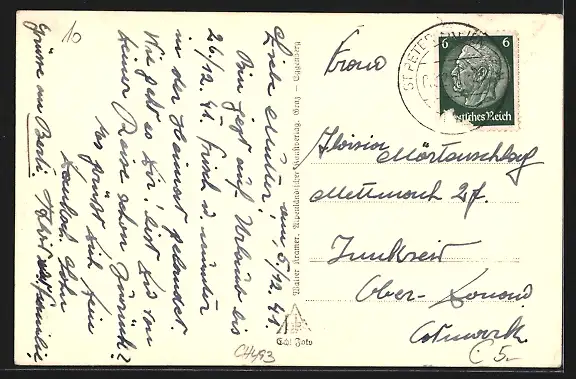 10
Liebe Mutter! am 5/12. 41.
Bin jetzt auf Urlaub bis
26/12. 41. Frisch u. munter
in der Heimat gelandet.
Wie geht es Dir! bist Du von
deiner Reise schon zurück?
Es grüsst dich dein
dankb. Sohn
Grüsse an Berti,
Familie
Walter Kramer, Alpenländischer Kunstverlag, Graz -
Echt Foto
CH493
Frau
Aloisia Mörtenschlag
Mettmach 27.
Innkreis
Ober-Donau
Ostmark
C 5.-
ST. PETER
6 6
Deutsches Reich